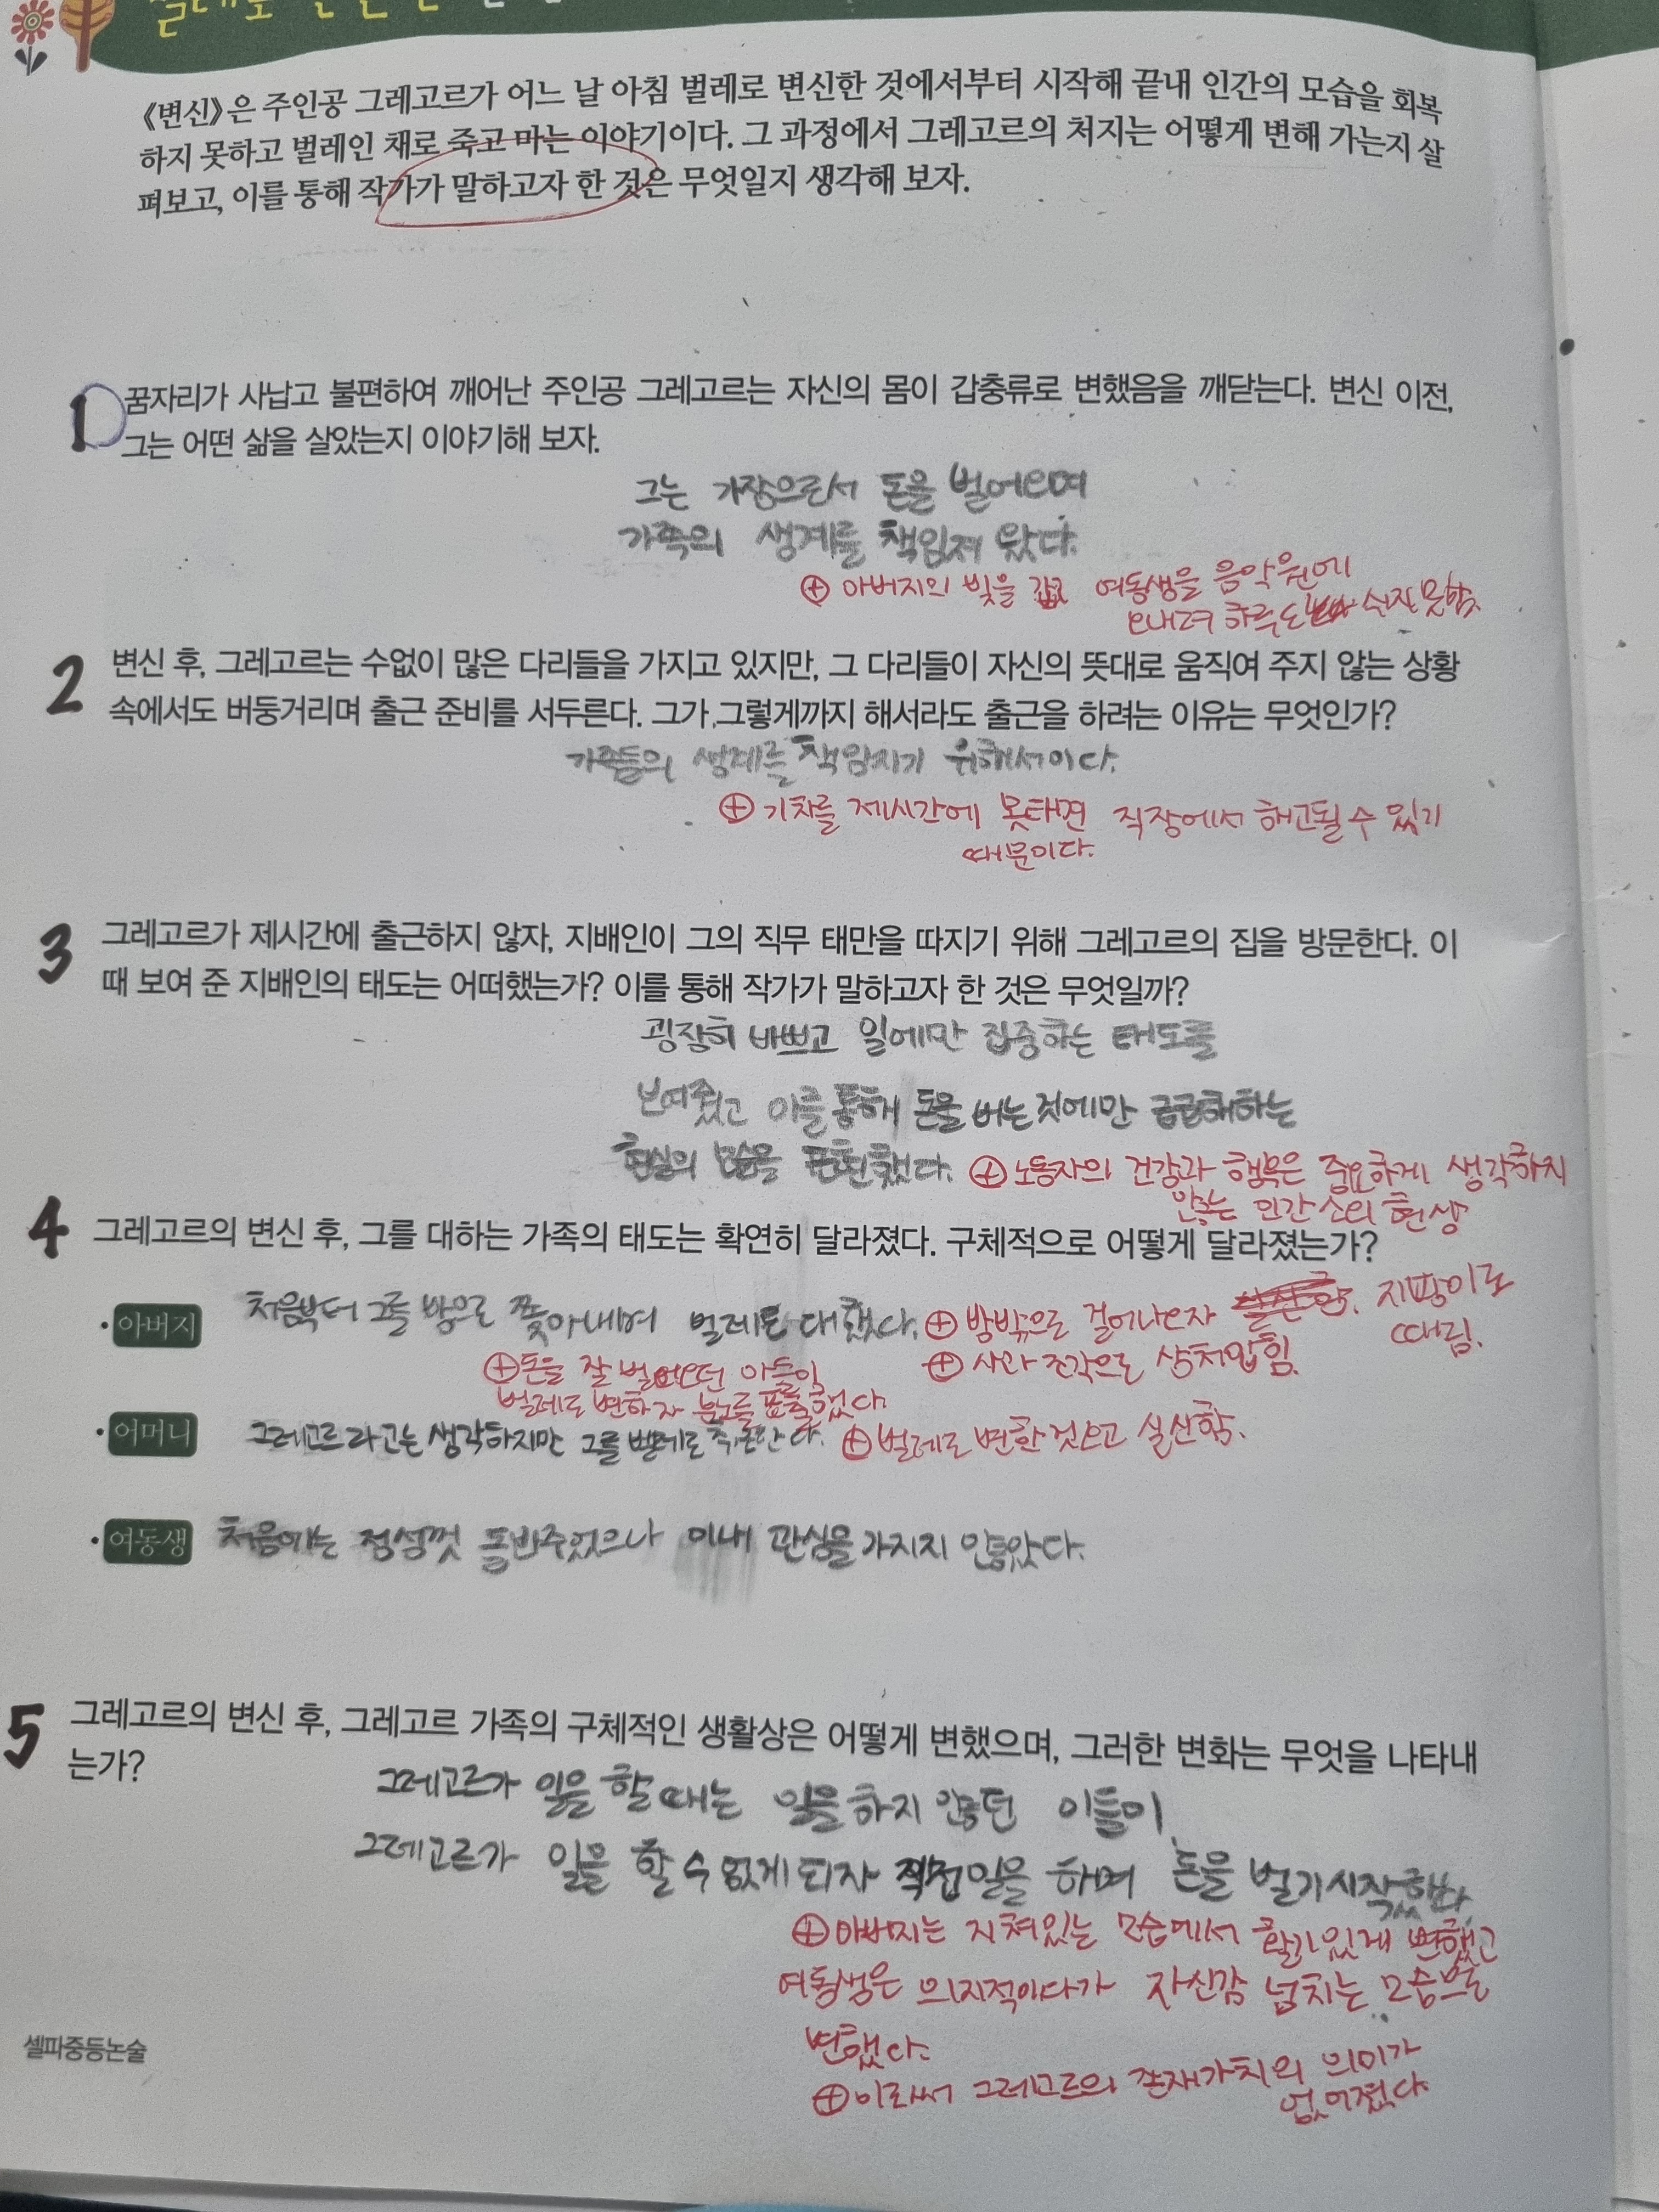 《변신》은 주인공 그레고르가 어느 날 아침 벌레로 변신한 것에서부터 시작해 끝내 인간의 모습을 회복
하지 못하고 벌레인 채로 죽고 마는 이야기이다. 그 과정에서 그레고르의 처지는 어떻게 변해 가는지 살
펴보고, 이를 통해 작가가 말하고자 한 것은 무엇일지 생각해 보자.
1 꿈자리가 사납고 불편하여 깨어난 주인공 그레고르는 자신의 몸이 갑충류로 변했음을 깨닫는다. 변신 이전,
그는 어떤 삶을 살았는지 이야기해 보자.
그는 가장으로서 돈을 벌어오며
가족의 생계를 책임져 왔다.
⊕ 아버지의 빚을 갚고 여동생을 음악원에
보내려 하루도 쉬지 못함.
2 변신 후, 그레고르는 수없이 많은 다리들을 가지고 있지만, 그 다리들이 자신의 뜻대로 움직여 주지 않는 상황
속에서도 버둥거리며 출근 준비를 서두른다. 그가 그렇게까지 해서라도 출근을 하려는 이유는 무엇인가?
가족들의 생계를 책임지기 위해서이다.
⊕ 기차를 제시간에 못타면 직장에서 해고될 수 있기
때문이다.
3 그레고르가 제시간에 출근하지 않자, 지배인이 그의 직무 태만을 따지기 위해 그레고르의 집을 방문한다. 이
때 보여 준 지배인의 태도는 어떠했는가? 이를 통해 작가가 말하고자 한 것은 무엇일까?
굉장히 바쁘고 일에만 집중하는 태도를
보여줬고 이를 통해 돈을 버는것에만 급급해하는
현실의 모습을 표현했다. ⊕ 노동자의 건강과 행복은 중요하게 생각하지
않는 인간 소외 현상
4 그레고르의 변신 후, 그를 대하는 가족의 태도는 확연히 달라졌다. 구체적으로 어떻게 달라졌는가?
• 아버지 처음부터 그를 방으로 쫓아내며 벌레로 대했다. ⊕ 방밖으로 걸어나오자 지팡이로
때림.
⊕ 사과 조각으로 상처입힘.
⊕ 돈을 잘 벌어오던 아들이
벌레로 변하자 분노를 표출했다.
• 어머니 그레고르라고는 생각하지만 그를 벌레로 취급한다. ⊕ 벌레로 변한것보고 실신함.
• 여동생 처음에는 정성껏 돌봐주었으나 이내 관심을 가지지 않았다.
5 그레고르의 변신 후, 그레고르 가족의 구체적인 생활상은 어떻게 변했으며, 그러한 변화는 무엇을 나타내
는가?
그레고르가 일을 할 때는 일을 하지 않던 이들이,
그레고르가 일을 할 수 없게 되자 직접 일을 하며 돈을 벌기 시작했다.
⊕ 아버지는 지쳐있는 모습에서 활기있게 변했고
여동생은 의지적이다가 자신감 넘치는 모습으로
변했다.
⊕ 이로써 그레고르의 존재가치의 의미가
없어졌다.
셀파중등논술